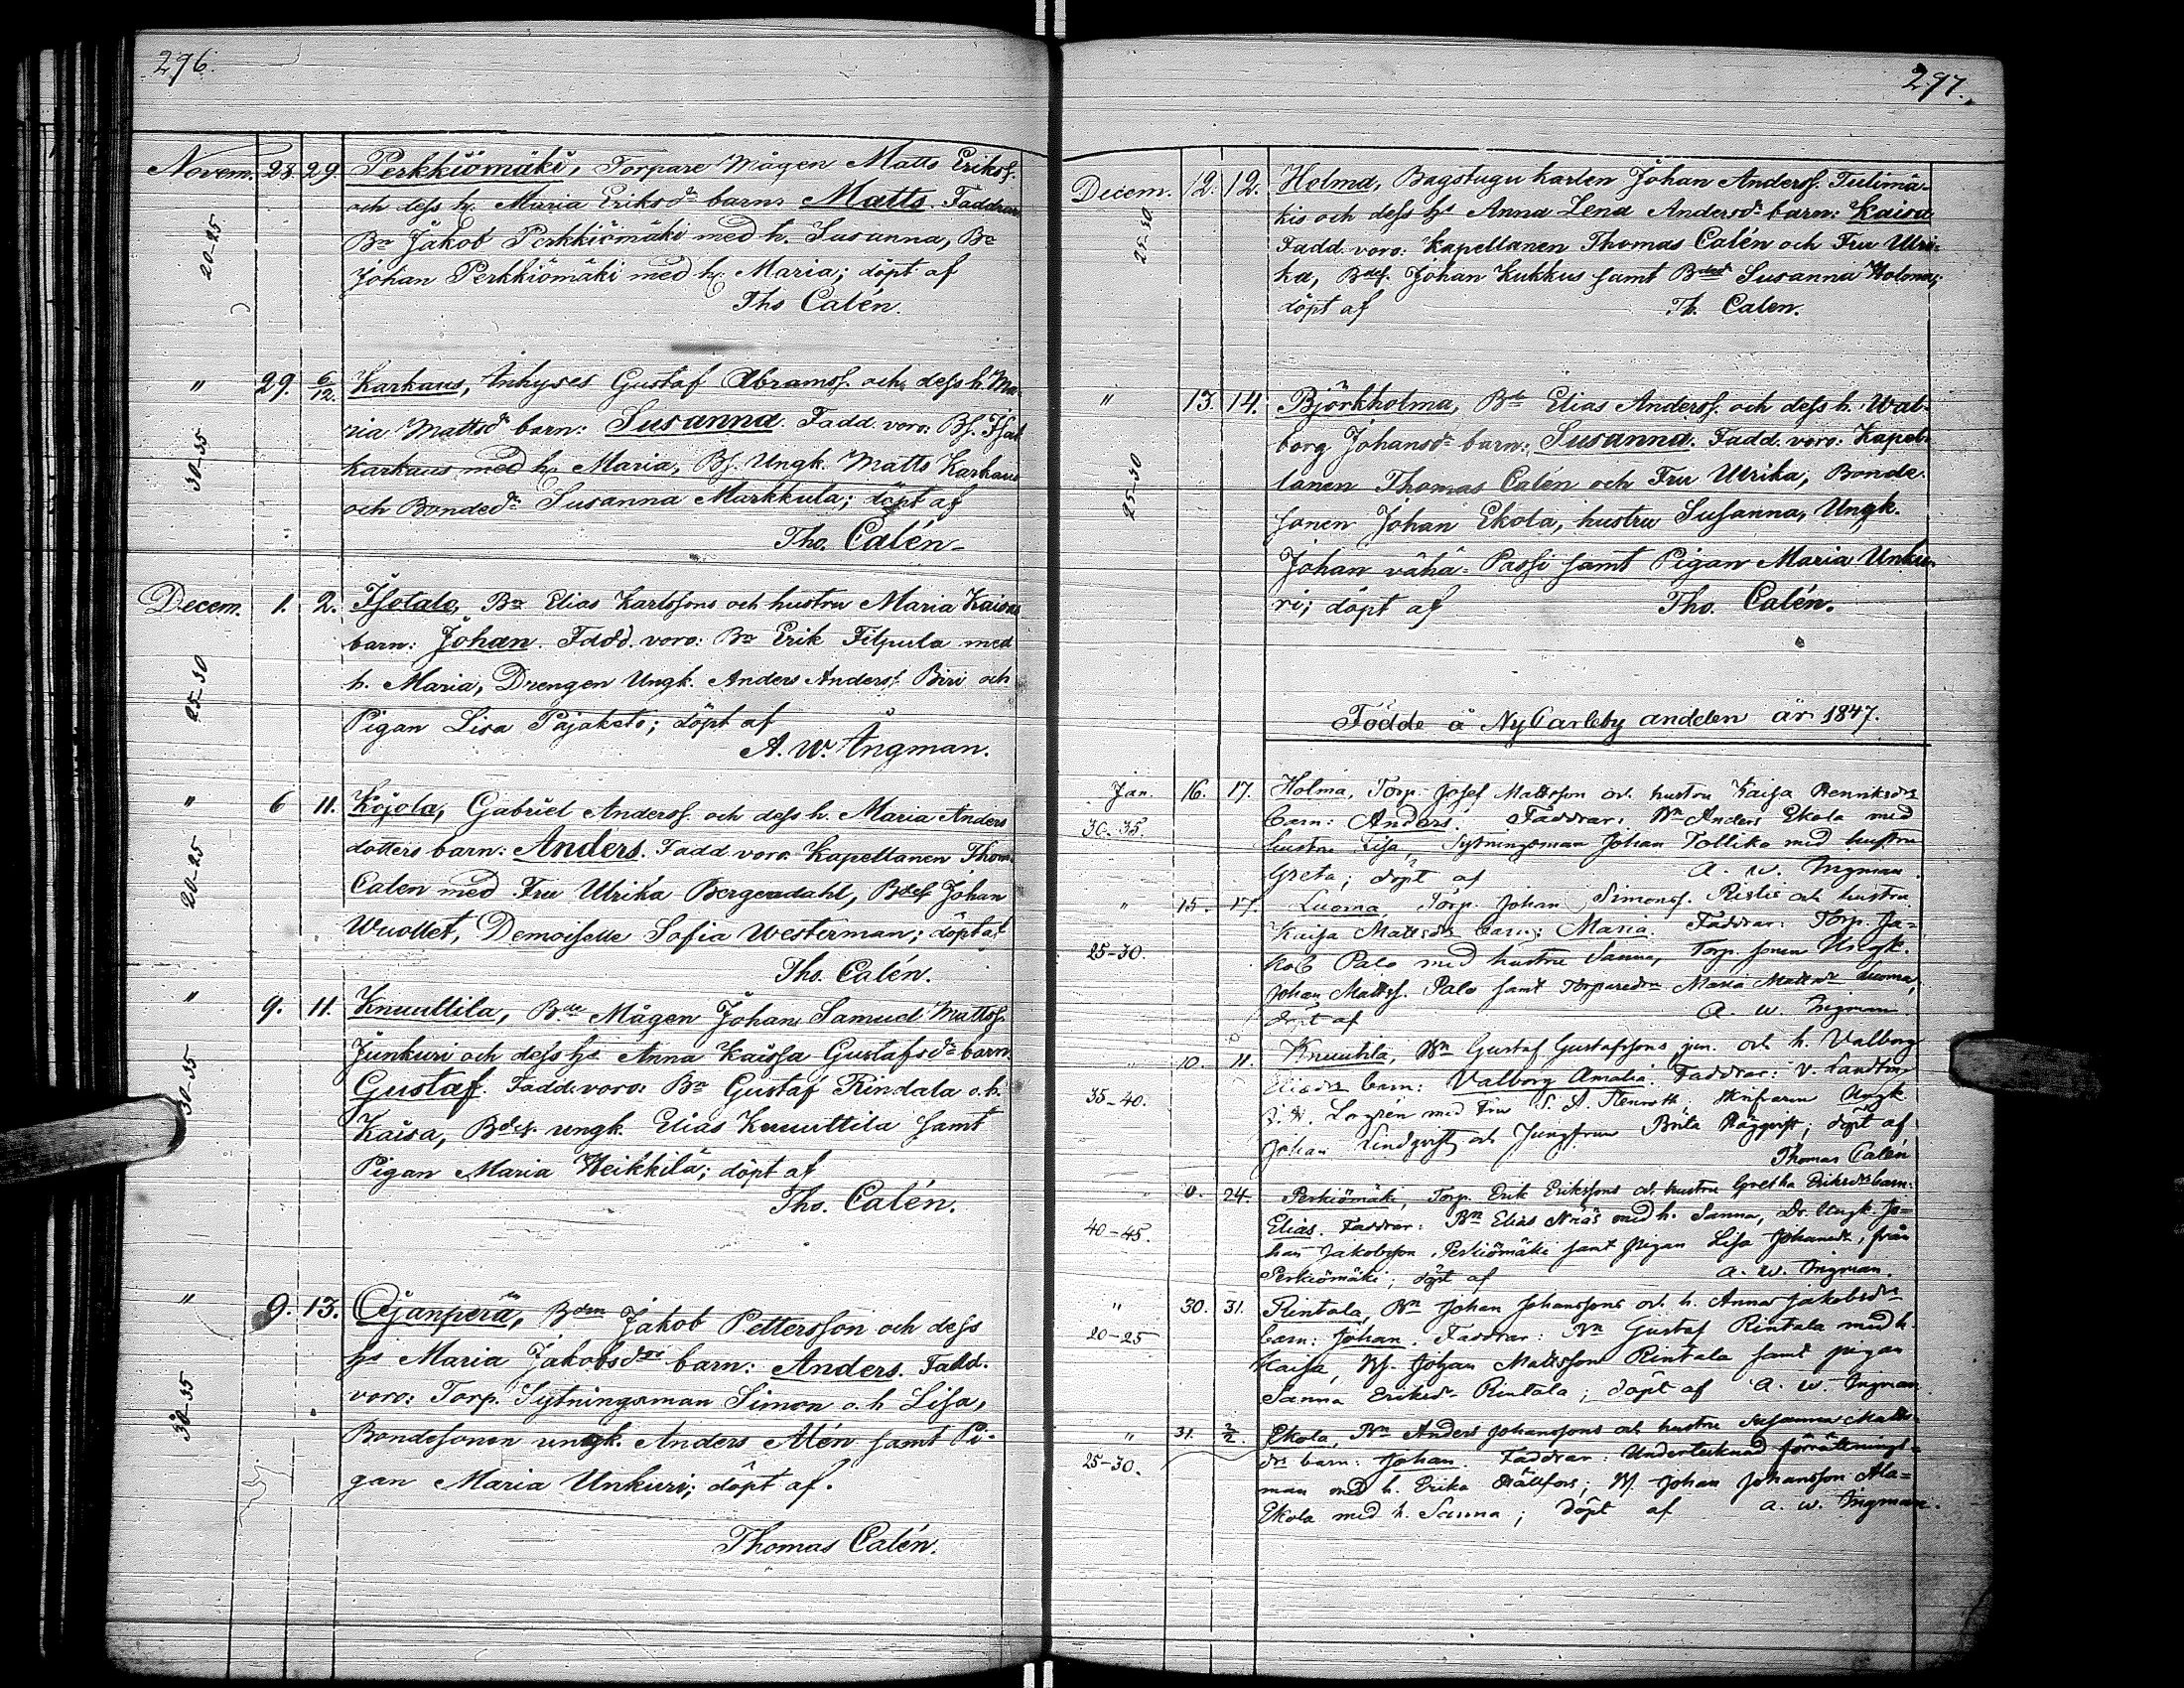 296.
Novem. 28. 29. Perkkiömäki, Torpare Mågen Matts Erikss.
och dess h. Maria Eriksdr barn: Matts. Faddrar
20-25
Bn Jakob Perkkiömäki med h. Susanna, Bn
Johan Perkkiömäki med h. Maria; döpt af
Ths Calén.
" 29. 6/12. Karkaus, Inhyses Gustaf Abramss. och dess h. Ma
ria Mattsdr barn: Susanna. Fadd. voro: Bs. Isak
30-35
Karkaus med h. Maria, Bs. Ungk. Matts Karkaus
och Bondedr Susanna Markkula; döpt af
Tho. Calén
Decem. 1. 2. Isotalo, Bn Elias Karlssons och hustru Maria Kaisas
barn: Johan. Fadd. voro: Bn Erik Filpula med
25-30
h. Maria, Drengen Ungk. Anders Anderss. Biri och
Pigan Lisa Pajakoto; döpt af
A. W. Ingman.
" 6 11. Kojola, Gabriel Anderss. och dess h. Maria Anders
dotters barn: Anders. Fadd. voro: Kapellanen Thom.
20-25
Calen med Fru Ulrika Bergendahl, Bdes. Johan
Wuollet, Demoiselle Sofia Westerman; döpt af
Tho. Calén.
" 9. 11. Knuuttila, Bde Mågen Johan Samuel Mattss.
Junkuri och dess h. Anna Kaissa Gustafsdr barn
30-35
Gustaf. Fadd. voro: Bn Gustaf Rindala o. h.
Kaisa, Bdes. ungk. Elias Knuuttila samt
Pigan Maria Heikkilä; döpt af
Tho. Calén.
" 9. 13. Ojanperä, Bdn Jakob Pettersson och dess
h. Maria Jakobsdrs barn: Anders. Fadd.
30-35
voro: Torp. Sytningsman Simon o. h Lisa,
Bondesonen ungk. Anders Alén samt Pi-
gan Maria Unkuri; döpt af.
Thomas Calén.
297.
Decem. 12. 12. Holma, Bagstugu karlen Johan Anderss. Tulimä-
kis och dess h. Anna Lena Andersdr barn: Kaisa
25-30
Fadd. voro: Kapellanen Thomas Calén och Fru Ulri-
ka, Bdes. Johan Kukkus samt Bded Susanna Holma;
döpt af Th. Calen.
" 13. 14. Björkholma, Bde Elias Anderss. och dess h. Wal-
borg Johansdr barn: Susanna. Fadd. voro: Kapel-
25-30
lanen Thomas Calén och Fru Ulrika, Bonde-
sonen Johan Ekola, hustru Susanna, Ungk.
Johan vähä-Passi samt Pigan Maria Unku-
ri; döpt af Tho. Calén.
Födde å NyCarleby andelen år 1847.
Jan. 16. 17. Holma, Torp. Josef Mattsson och hustru Kaisa Henriksdrs
30-35. barn: Anders. Faddrar: Bn Anders Ekola med
hustru Lisa, Sytningsman Johan Tollikko med hustru
Greta; döpt af A. W. Ingman.
" 15. 17. Luoma, Torp. Johan Simonss. Ristis och hustru
Kaisa Mattsdrs barn: Maria. Faddrar: Torp. Ja-
25-30.
kob Palo med hustru Sanna, Torp. sonen Ungk.
Johan Mattss. Palo samt Torparedr Maria Mattsdr Luoma;
döpt af A. W. Ingman.
" 10. 11. Knuutila, Bn Gustaf Gustafssons jun. och h. Valborg
Eliædrs barn: Valborg Amalia. Faddrar: V. Landtm.
35-40.
med Fru S. A. Stenroth, Ungk.
Johan Lindqvist och Jungfrun Brita Häggqvist; döpt af
Thomas Calén
" 0. 24. Perkiömäki, Torp. Erik Erikssons och hustru Gretha Eriksdrs barn:
Elias. Faddrar: Bn Elias Nräs med h. Sanna, Dr. Ungk. Jo-
40-45.
han Jakobsson Perkiömäki samt pigan Lisa Johansdr, från
Perkiömäki; döpt af A. W. Ingman.
" 30. 31. Rintala, Bn Johan Johanssons och h. Anna Jakobsdrs
20-25 barn: Johan. Faddrar: Bn Gustaf Rintala med h.
Kaisa, Bs. Johan Mattsson Rintala samt pigan
Sanna Eriksdr Rintala; döpt af A. W. Ingman.
" 31. 2/2. Ekola, Bn Anders Johanssons och hustru Susanna Matts-
drs barn: Johan. Faddrar: Undertecknad förrättnings-
25-30.
man med h. Erika Hällfors; Bs. Johan Johansson Ala-
Ekola med h. Sanna; döpt af A. W. Ingman.